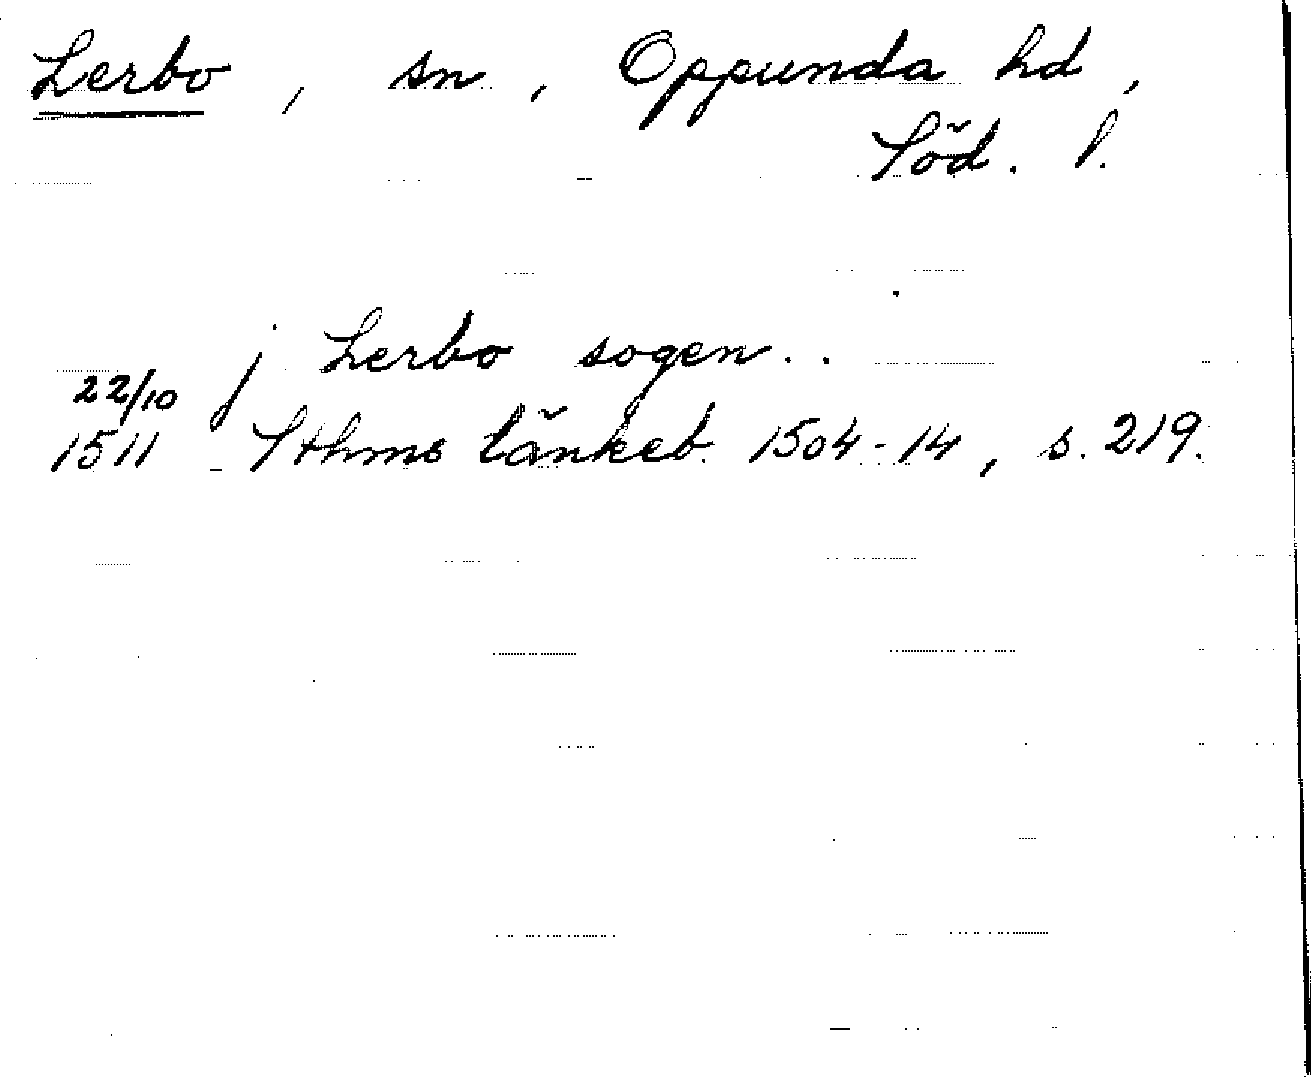 Lerbo, sn, Oppunda hd,
Söd. l.
j Lerbo sogen..
22/10
1511 Sthms tänkeb. 1504-14, s. 219.